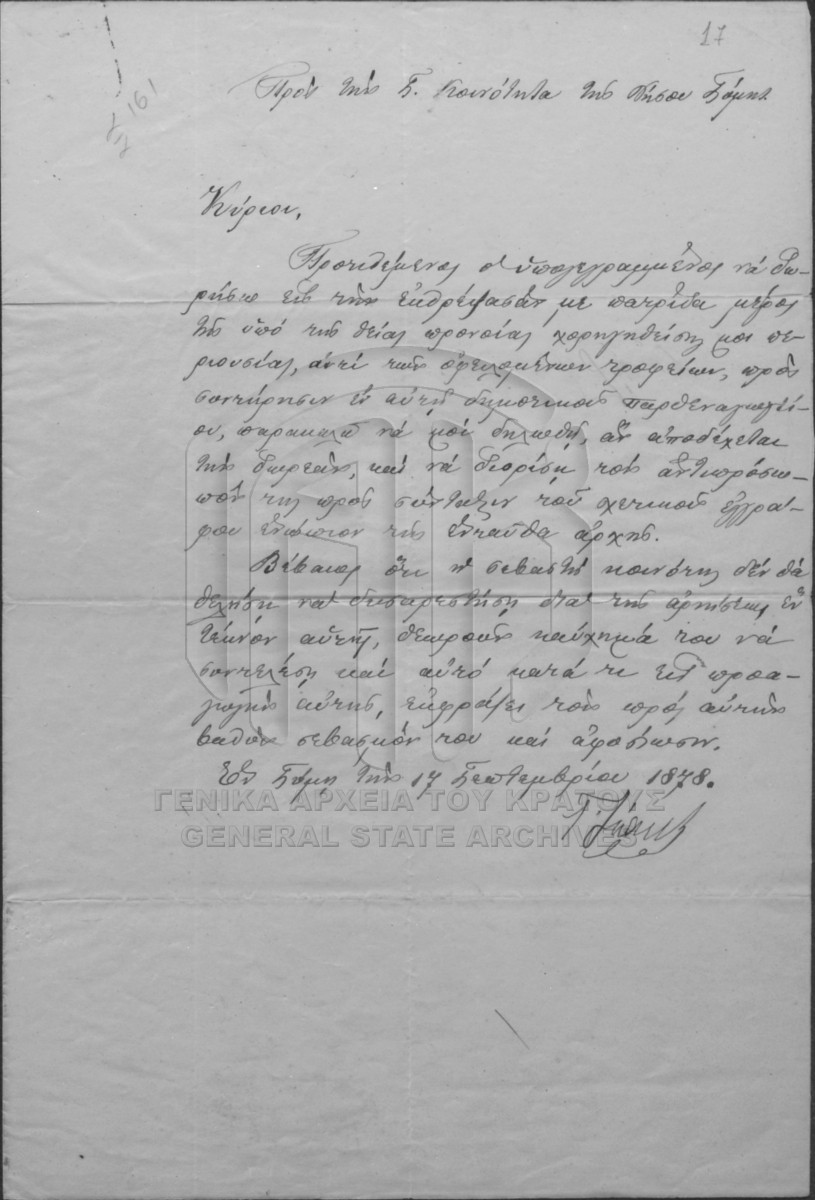 17
161
Πρὸς τὴν Σ. Κοινότητα τῆς Νήσου Σύμης
Κύριοι,
Προτιθέμενος ὁ ὑπογεγραμμένος νὰ δω-
ρήσω εἰς τὴν ἐκθρέψασάν με πατρίδα μέρος
τῆς ὑπὸ τῆς θείας προνοίας χορηγηθείσης μοι πε-
ριουσίας, ἀντὶ τῶν ὀφειλομένων τροφείων, πρὸς
συντήρησιν ἐν αὐτῇ δημοτικοῦ παρθεναγωγεί-
ου, παρακαλῶ νὰ μοὶ δηλωθῇ, ἂν ἀποδέχεται
τὴν δωρεάν, καὶ νὰ διορίσῃ τοὺς ἀντιπροσώ-
πους της πρὸς σύνταξιν τοῦ σχετικοῦ ἐγγρά-
φου ἐνώπιον τῆς ἐνταῦθα ἀρχῆς.
Βέβαιος ὅτι ἡ σεβαστὴ κοινότης δὲν θὰ
θελήσῃ νὰ δυσαρεστήσῃ διὰ τῆς ἀρνήσεως ἓν
τέκνον αὐτῆς, θεωροῦν καύχημά του νὰ
συντελέσῃ καὶ αὐτὸ κατά τι εἰς προα-
γωγὴν αὐτῆς, ἐκφράζει τὸν πρὸς αὐτὴν
βαθὺν σεβασμόν του καὶ ἀφοσίωσιν.
Ἐν Σύμῃ τὴν 17 Σεπτεμβρίου 1878.
ΓΕΝΙΚΑ ΑΡΧΕΙΑ ΤΟΥ ΚΡΑΤΟΥΣ
GENERAL STATE ARCHIVES